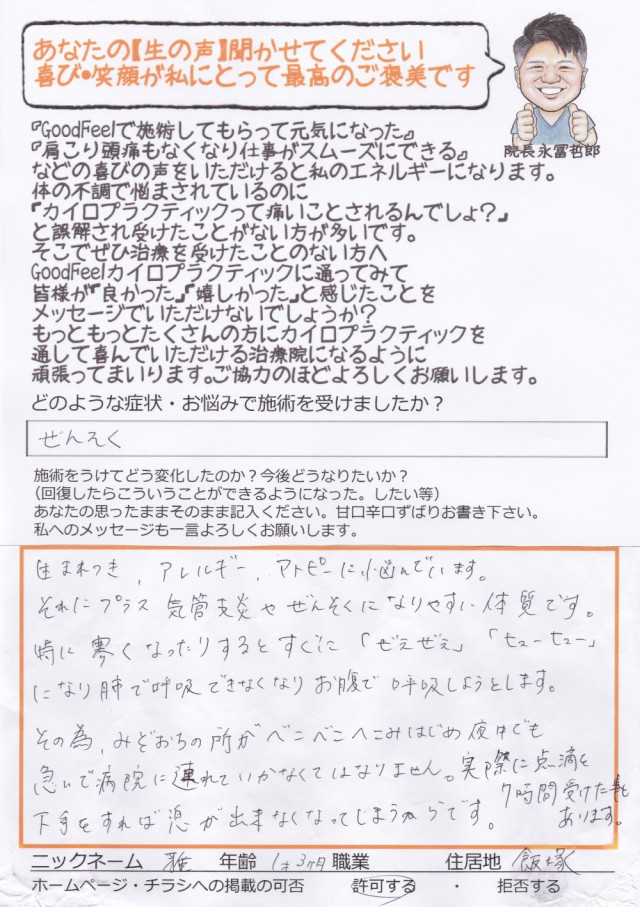 あなたの【生の声】聞かせてください
喜び・笑顔が私にとって最高のご褒美です
院長 永冨哲郎
『GoodFeelで施術してもらって元気になった』
『肩こり頭痛もなくなり仕事がスムーズにできる』
などの喜びの声をいただけると私のエネルギーになります。
体の不調で悩まされているのに
『カイロプラクティックって痛いことされるんでしょ？』
と誤解され受けたことがない方が多いです。
そこでぜひ治療を受けたことのない方へ
GoodFeelカイロプラクティックに通ってみて
皆様が『良かった』『嬉しかった』と感じたことを
メッセージでいただけないでしょうか？
もっともっとたくさんの方にカイロプラクティックを
通して喜んでいただける治療院になるように
頑張ってまいります。ご協力のほどよろしくお願いします。
どのような症状・お悩みで施術を受けましたか？
ぜんそく
施術をうけてどう変化したのか？今後どうなりたいか？
（回復したらこういうことができるようになった。したい等）
あなたの思ったままそのまま記入ください。甘口辛口ずばりお書き下さい。
私へのメッセージも一言よろしくお願いします。
生まれつき、アレルギー、アトピーに悩んでいます。
それにプラス気管支炎やぜんそくになりやすい体質です。
特に寒くなったりするとすぐに「ぜえぜえ」「ヒューヒュー」
になり肺で呼吸できなくなりお腹で呼吸しようとします。
その為、みぞおちの所がベコベコへこみはじめ夜中でも
急いで病院に連れていかなくてはなりません。実際に点滴を
7時間受けた事も
あります。
下手をすれば息が出来なくなってしまうからです。
ニックネーム 雅 年齢 1才3ヶ月 職業 住居地 飯塚
ホームページ・チラシへの掲載の可否 許可する ・ 拒否する